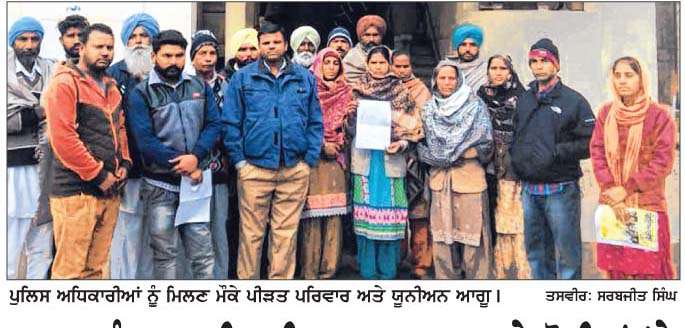 ਪੁਲਿਸ ਅਧਿਕਾਰੀਆਂ ਨੂੰ ਮਿਲਣ ਮੌਕੇ ਪੀੜਤ ਪਰਿਵਾਰ ਅਤੇ ਯੂਨੀਅਨ ਆਗੂ। ਤਸਵੀਰ: ਸਰਬਜੀਤ ਸਿੰਘ